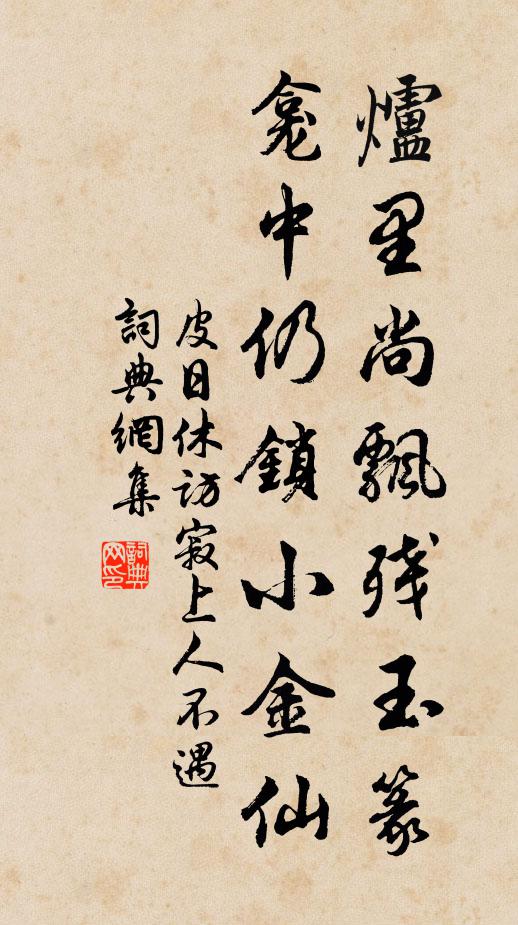 爐里尚飄残玉篆
龕中仍鎖小金仙
皮日休訪寂上人不遇
詞典網集
詞典网印